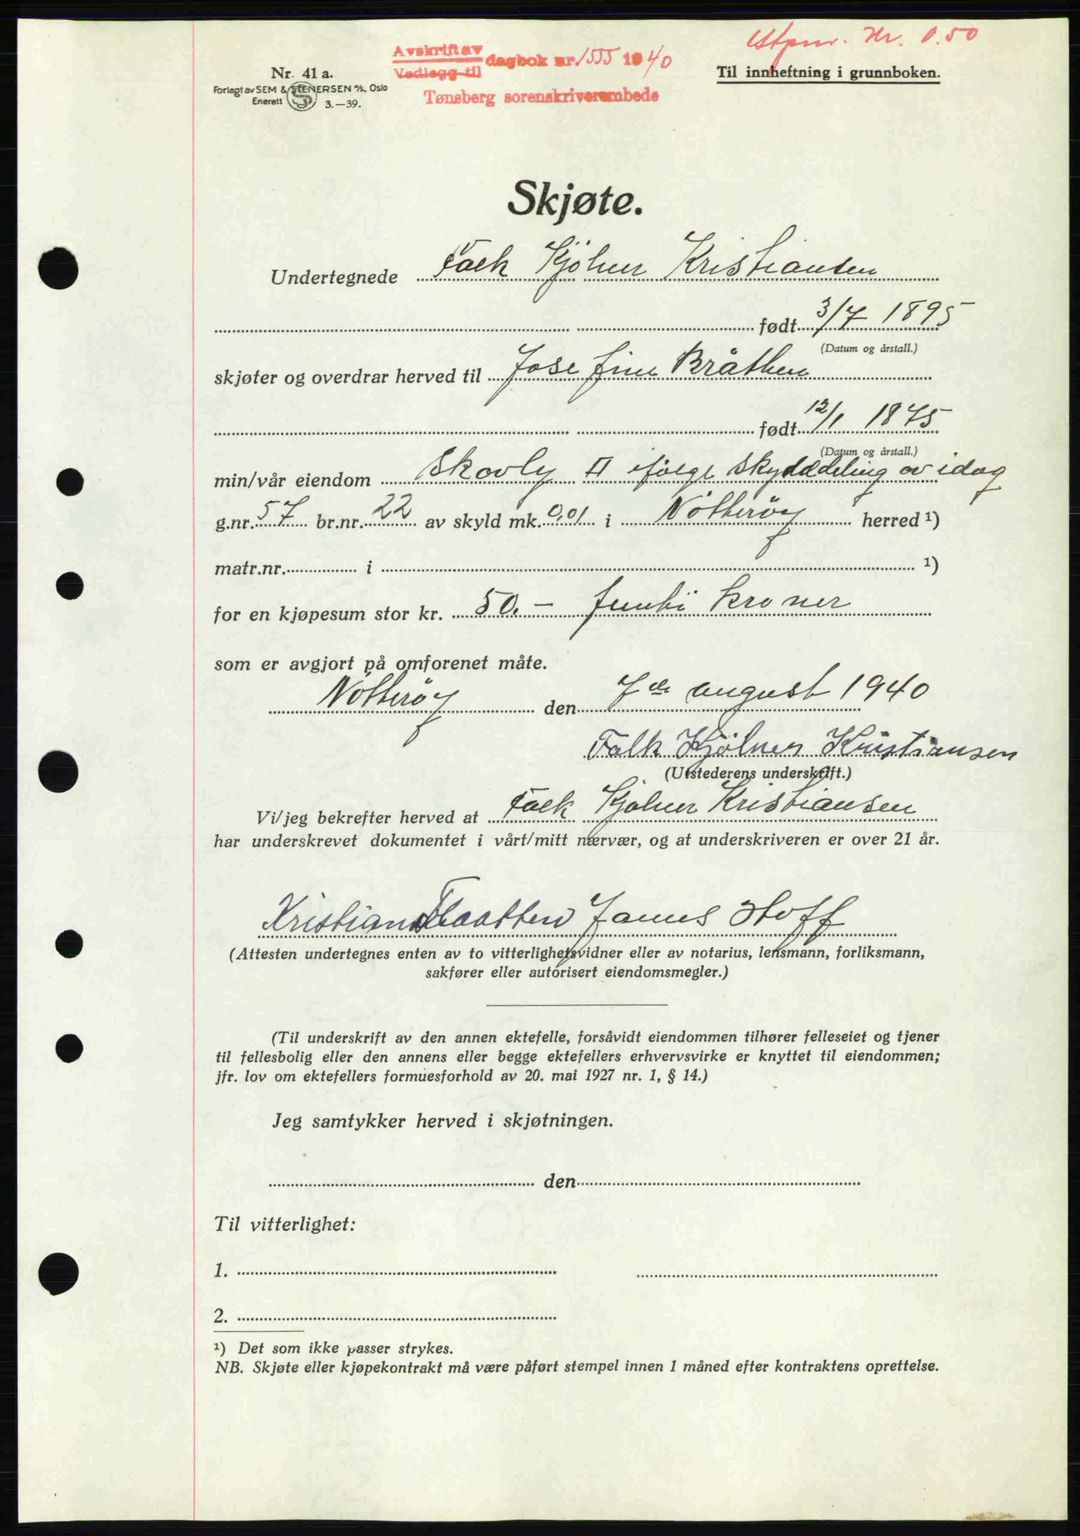 Stpm. Kr. 0.50
Avskrift av
Vedlegg til dagbok nr. 1555 1940
Tønsberg sorenskriverembede
Nr. 41 a.
Forlagt av SEM & STENERSEN A/S, Oslo
Enerett S 3.—39.
Til innheftning i grunnboken.
Skjøte.
Undertegnede Falk Kjölner Kristiansen
født 3/7 1895
(Datum og årstall.)
skjøter og overdrar herved til Josefine Bråthen
født 12/1 1875
(Datum og årstall.)
min/vår eiendom Skovly II ifølge skylddeling av idag
g.nr. 57 br.nr. 22 av skyld mk. 0,01 i Nötterøy herred ¹)
matr.nr. i ¹)
for en kjøpesum stor kr. 50.— femti kroner
som er avgjort på omforenet måte.
Nötterøy den 7de august 1940
Falk Kjölner Kristiansen
(Utstederens underskrift.)
Vi/jeg bekrefter herved at Falk Kjölner Kristiansen
har underskrevet dokumentet i vårt/mitt nærvær, og at underskriveren er over 21 år.
Kristian Flaatten James Hoff
(Attesten undertegnes enten av to vitterlighetsvidner eller av notarius, lensmann, forliksmann,
sakfører eller autorisert eiendomsmegler.)
(Til underskrift av den annen ektefelle, forsåvidt eiendommen tilhører felleseiet og tjener
til fellesbolig eller den annens eller begge ektefellers erhvervsvirke er knyttet til eiendommen;
jfr. lov om ektefellers formuesforhold av 20. mai 1927 nr. 1, § 14.)
Jeg samtykker herved i skjøtningen.
den
Til vitterlighet:
1.
2.
¹) Det som ikke passer strykes.
NB. Skjøte eller kjøpekontrakt må være påført stempel innen 1 måned efter kontraktens oprettelse.